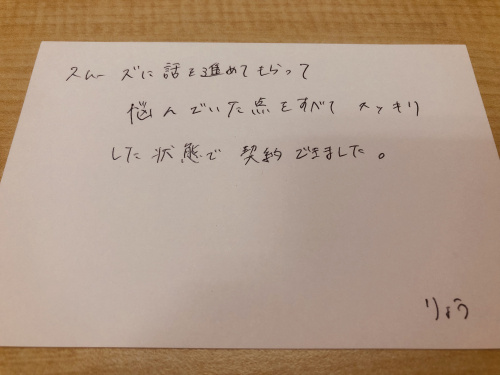 スムーズに話を進めてもらって
悩んでいた点をすべてスッキリ
した状態で契約できました。
りょう